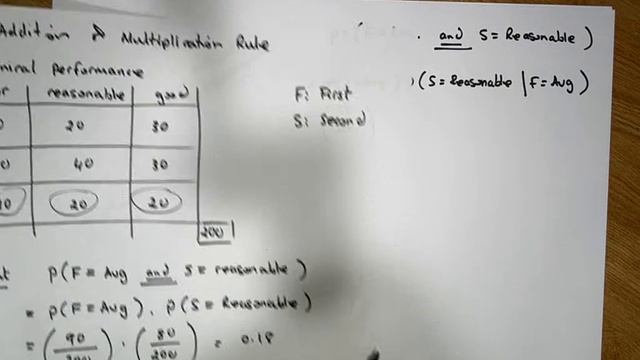 Addition & Multiplication Rule
performance
reasonable good
20 30
40 30
20 20
200
F: First
S: Second
and S = Reasonable )
( S = Reasonable | F = Avg )
P(F = Avg and S = reasonable )
= P(F = Avg) . P(S = Reasonable )
= ( 90 ) . ( 80 / 200 ) = 0.18